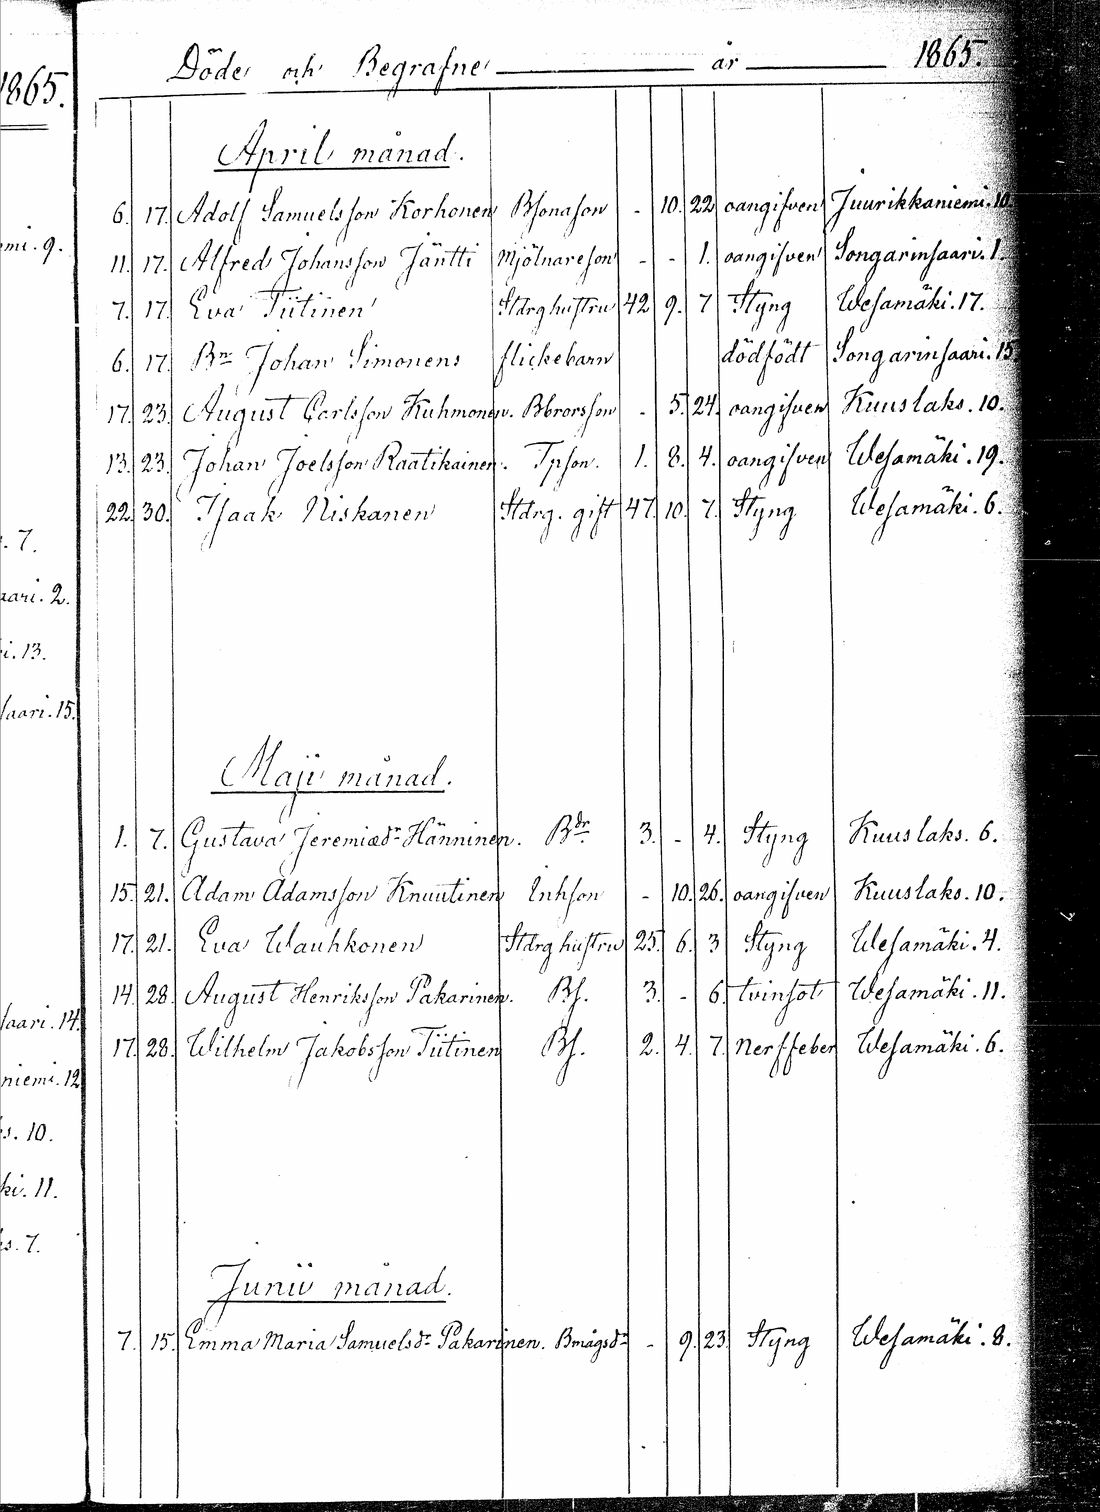 1865.
emi. 9.
. 7.
aari. 2.
i. 13.
saari. 15.
saari. 14.
niemi. 12
s. 10.
ki. 11.
s. 7.
Döde och Begrafne år 1865.
April månad.
6. 17. Adolf Samuelsson Korhonen Bsonason - 10. 22 oangifven Juurikkaniemi. 10.
11. 17. Alfred Johansson Jäntti Mjölnareson - - 1. oangifven Songarinsaari. 1.
7. 17. Eva Tiitinen Stdrg hustru 42 9. 7 Styng Wesamäki. 17.
6. 17. Bn Johan Simonens flickebarn dödfödt Songarinsaari. 15
17. 23. August Carlsson Kuhmonen. Bbrorsson - 5. 24. oangifven Kuuslaks. 10.
13. 23. Johan Joelsson Raatikainen. Tpson. 1. 8. 4. oangifven Wesamäki. 19.
22. 30. Isaak Niskanen Stdrg. gift 47. 10. 7. Styng Wesamäki. 6.
Maji månad.
1. 7. Gustava Jeremiædr Hänninen. Bdr 3. - 4. Styng Kuuslaks. 6.
15. 21. Adam Adamsson Knuutinen Inhson - 10. 26. oangifven Kuuslaks. 10.
17. 21. Eva Wauhkonen Stdrg hustru 25. 6. 3 Styng Wesamäki. 4.
14. 28. August Henriksson Pakarinen. Bs. 3. - 6. tvinsot Wesamäki. 11.
17. 28. Wilhelm Jakobsson Tiitinen Bs. 2. 4. 7. Nerffeber Wesamäki. 6.
Junii månad.
7. 15. Emma Maria Samuelsdr Pakarinen. Bmågsdr - 9. 23. Styng Wesamäki. 8.